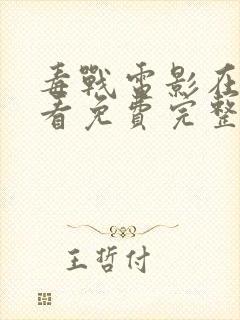 毒戰電影在
看免費完整
王哲付